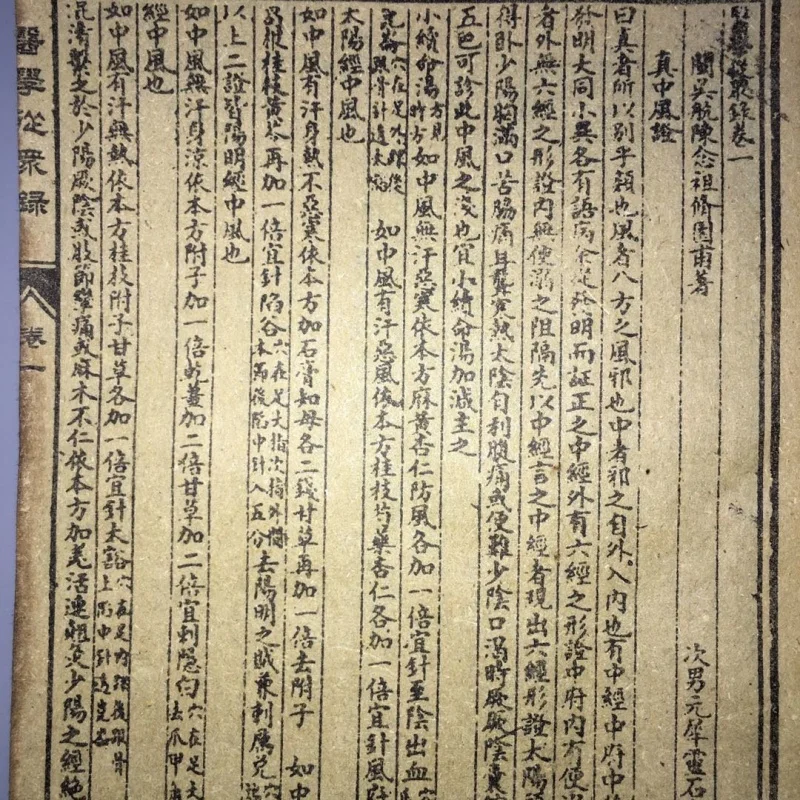 醫學從眾錄卷一
閩吳航陳念祖修園甫著
次男元犀靈石
真中風證
曰真者所以別乎類也風者八方之風邪也中者邪之自外入內也有中經中府中
發明大同小異各有語病余從發明而証正之中經外有六經之形證中府內有便
者外無六經之形證內無便溺之阻隔先以中經言之中經者現出六經形證太陽
得臥少陽胸滿口苦脇痛耳聾寒熱太陰自利腹痛或便難少陰口渴時厥厥陰囊
五色可診此中風之淺也宜小續命湯加減主之
小續命湯方見時方如中風無汗惡寒依本方麻黃杏仁防風各加一倍宜針至陰出血穴
崑崙穴在足外踝後跟骨針透太谿如中風有汗惡風依本方桂枝芍藥杏仁各加一倍宜針風
太陽經中風也
如中風有汗身熱不惡寒依本方加石膏知母各二錢甘草再加一倍去附子 如中
葛根桂枝黃芩再加一倍宜針陷谷穴在足大指次指外間本節後陷中針入五分去陽明之賊兼刺厲兌穴
以上二證皆陽明經中風也
如中風無汗身涼依本方附子加一倍乾薑加二倍甘草加二倍宜刺隱白穴在足大去爪甲
經中風也
如中風有汗無熱依本方桂枝附子甘草各加一倍宜針太谿穴在足內踝後跟骨上陷中針透崑崙
混淆繫之於少陽厥陰或肢節攣痛或麻木不仁依本方加羌活連翹 少陽之經絕
醫學從眾錄 卷一